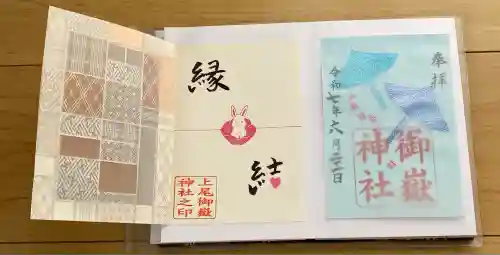 縁
結
上尾御嶽
神社之印
奉拝
御嶽
神社
令和七年六月